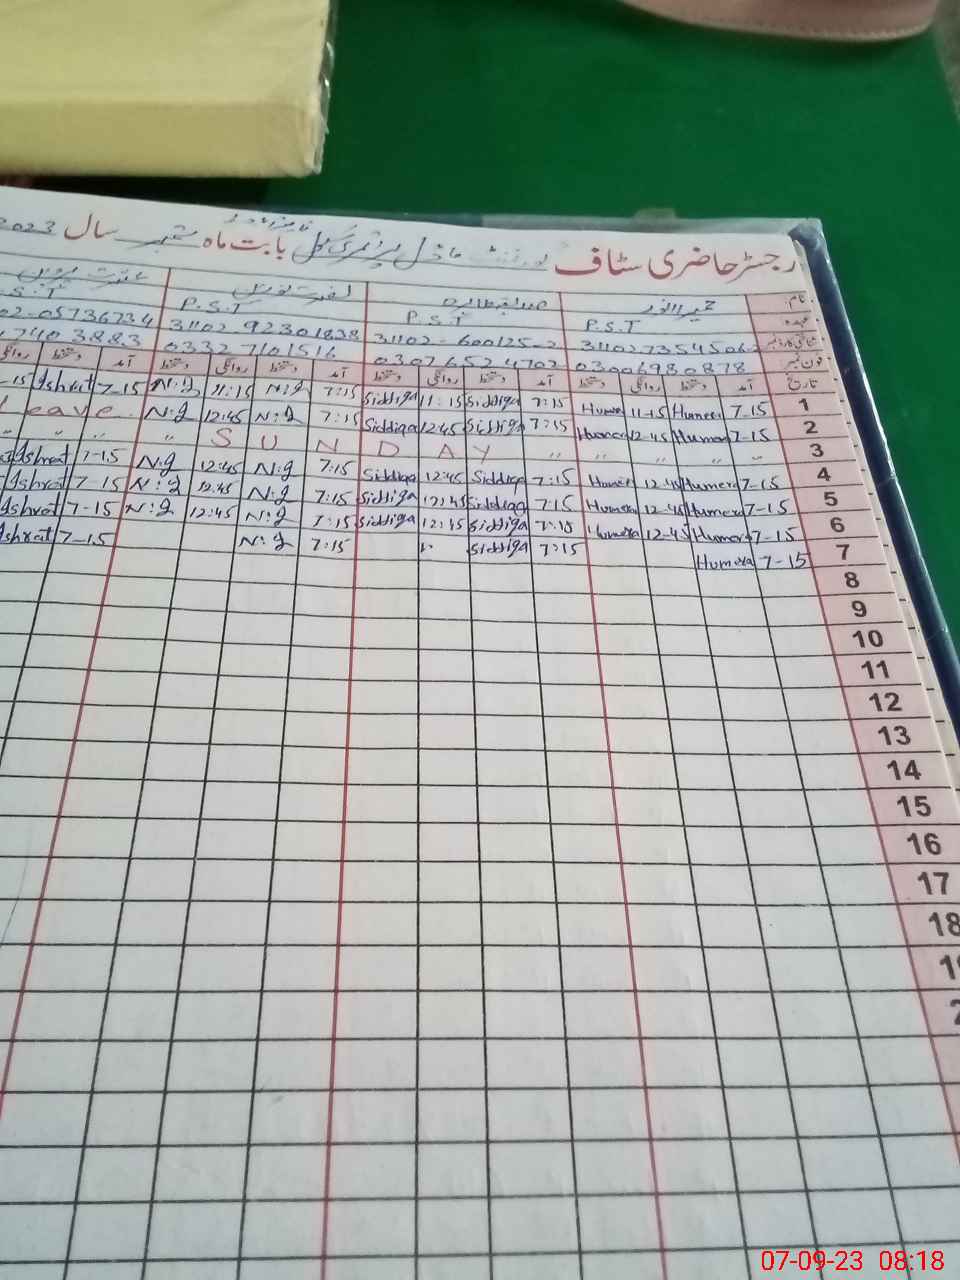 رجسٹر حاضری سٹاف گورنمنٹ ماڈل پرائمری سکول بابت ماہ ستمبر سال 2023
نام
عہدہ P.S.T P.S.T P.S.T S.T
شناختی کارڈ نمبر 31102-600125-2 31102 92301838 02-05736734
فون نمبر 03006980878 03076524702 0332 7101516 7403883
تاریخ آمد دستخط روانگی دستخط آمد دستخط روانگی دستخط آمد دستخط روانگی دستخط آمد دستخط روانگی
1 7-15 Humera 11-15 Humera 7:15 Siddiqa 11:15 Siddiqa 7:15 N:g 11:15 N:g 7-15 Ishrat -15
2 7-15 Humera 12-45 Humera 7:15 Siddiqa 12:45 Siddiqa 7:15 N:g 12:45 N:g Leave
3 " " " " " SUNDAY " " " "
4 7-15 Humera 12-45 Humera 7:15 Siddiqa 12:45 Siddiqa 7:15 N:g 12:45 N:g 7-15 Ishrat
5 7-15 Humera 12-45 Humera 7:15 Siddiqa 12:45 Siddiqa 7:15 N:g 12:45 N:g 7-15 Ishrat
6 7-15 Humera 12-45 Humera 7:15 Siddiqa 12:45 Siddiqa 7:15 N:g 12:45 N:g 7-15 Ishrat
7 7-15 Humera 7:15 Siddiqa 7:15 N:g 7-15 Ishrat
8
9
10
11
12
13
14
15
16
17
18
07-09-23 08:18